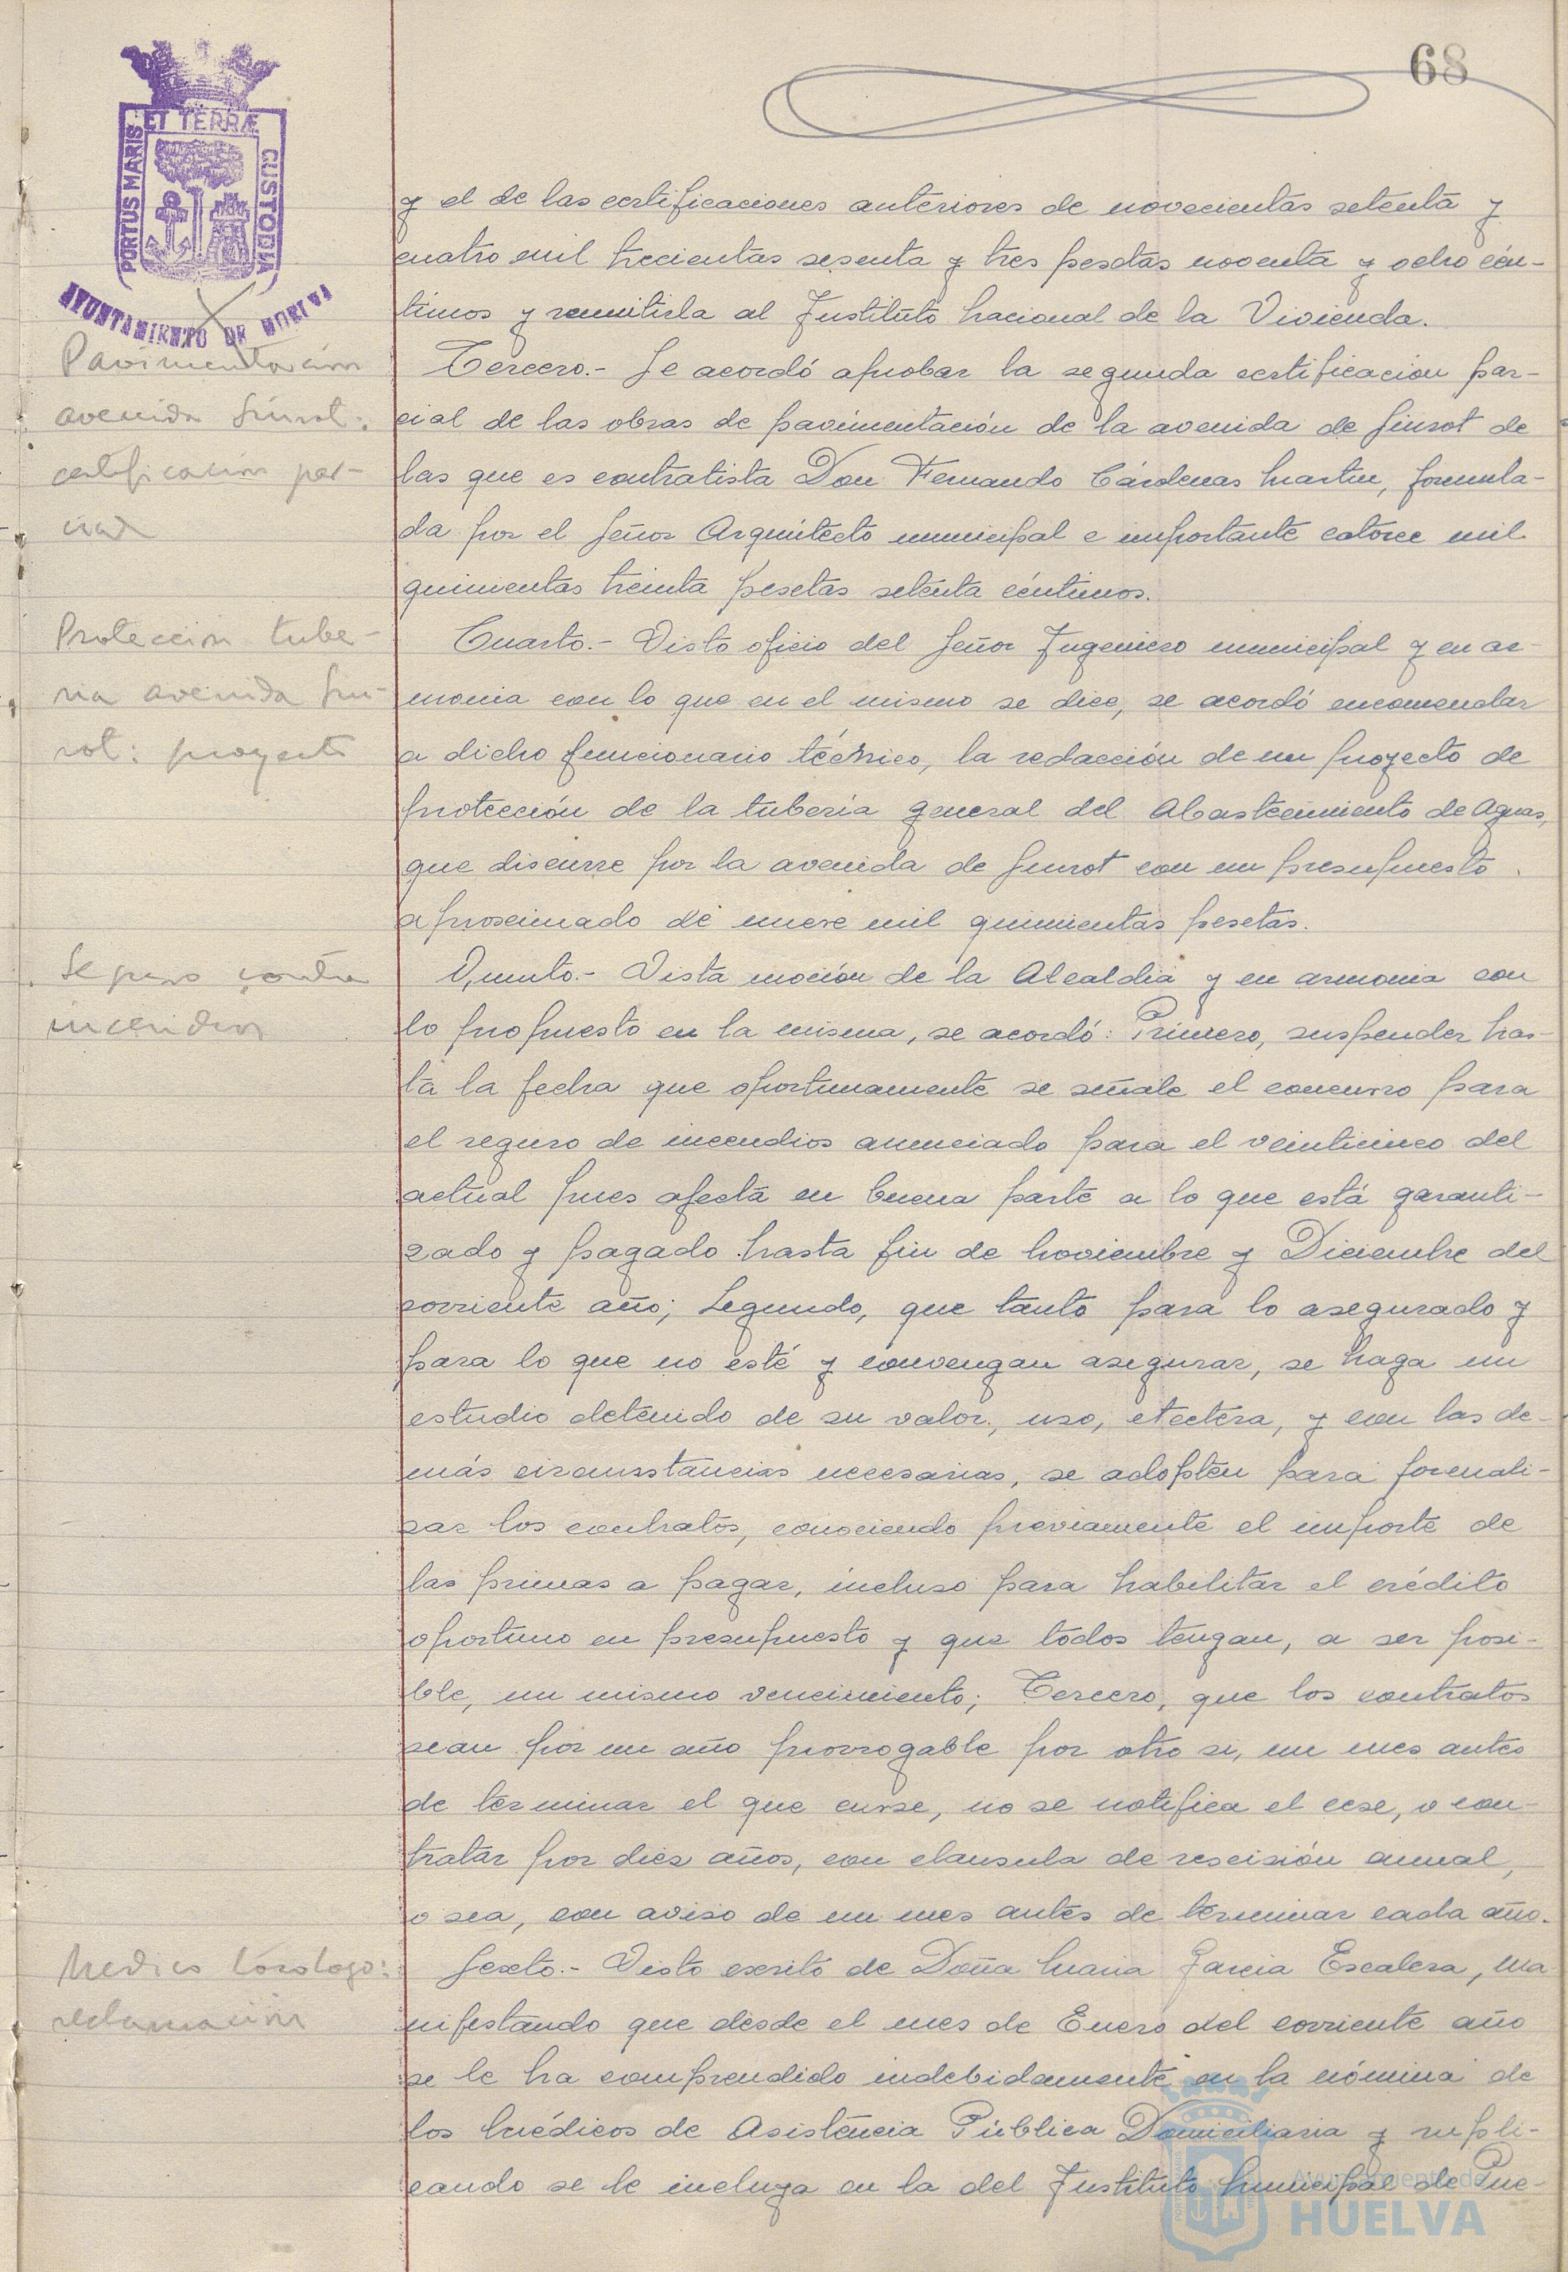 68
ET TERRÆ
PORTUS MARIS
CUSTODIA
AYUNTAMIENTO DE HUELVA
y el de las certificaciones anteriores de novecientas setenta y
cuatro mil trecientas sesenta y tres pesetas noventa y ocho cén-
timos y remitirla al Instituto Nacional de la Vivienda.
Pavimentación
avenida Gunrot:
certificación par-
cial
Tercero.- Se acordó aprobar la segunda certificación par-
cial de las obras de pavimentación de la avenida de Gunrot de
las que es contratista Don Fernando Cárdenas Martin, formula-
da por el Señor Arquitecto municipal e importante catorce mil
quinientas treinta pesetas setenta céntimos.
Protección tube-
ria avenida Gun-
rot: proyecto
Cuarto.- Visto oficio del Señor Ingeniero municipal y en ar-
monia con lo que en el mismo se dice, se acordó encomendar
a dicho funcionario técnico, la redacción de un proyecto de
protección de la tuberia general del Abastecimiento de Aguas,
que discurre por la avenida de Gunrot con un presupuesto
aproximado de nueve mil quinientas pesetas.
Seguro contra
incendios
Quinto.- Vista moción de la Alcaldia y en armonia con
lo propuesto en la misma, se acordó: Primero, suspender has-
ta la fecha que oportunamente se señale el concurso para
el seguro de incendios anunciado para el veinticinco del
actual pues afecta en buena parte a lo que está garanti-
zado y pagado hasta fin de Noviembre y Diciembre del
corriente año; Segundo, que tanto para lo asegurado y
para lo que no esté y convengan asegurar, se haga un
estudio detenido de su valor, uso, etectera, y con las de-
más circunsstancias necesarias, se adopten para formali-
zar los contratos, conociendo previamente el importe de
las primas a pagar, incluso para habilitar el crédito
oportuno en presupuesto y que todos tengan, a ser posi-
ble, un mismo vencimiento; Tercero, que los contratos
sean por un año prorrogable por otro si, un mes antes
de terminar el que curse, no se notifica el cese, o con-
tratar por diez años, con clausula de rescisión anual,
o sea, con aviso de un mes antes de terminar cada año.
Médico tocologo:
reclamación
Sexto.- Visto escrito de Doña Maria Garcia Escalera, ma-
nifestando que desde el mes de Enero del corriente año
se le ha comprendido indebidamente en la nómina de
los Médicos de Asistencia Pública Domiciliaria y supli-
cando se le incluya en la del Instituto Municipal de Pue-
Ayuntamiento de
HUELVA